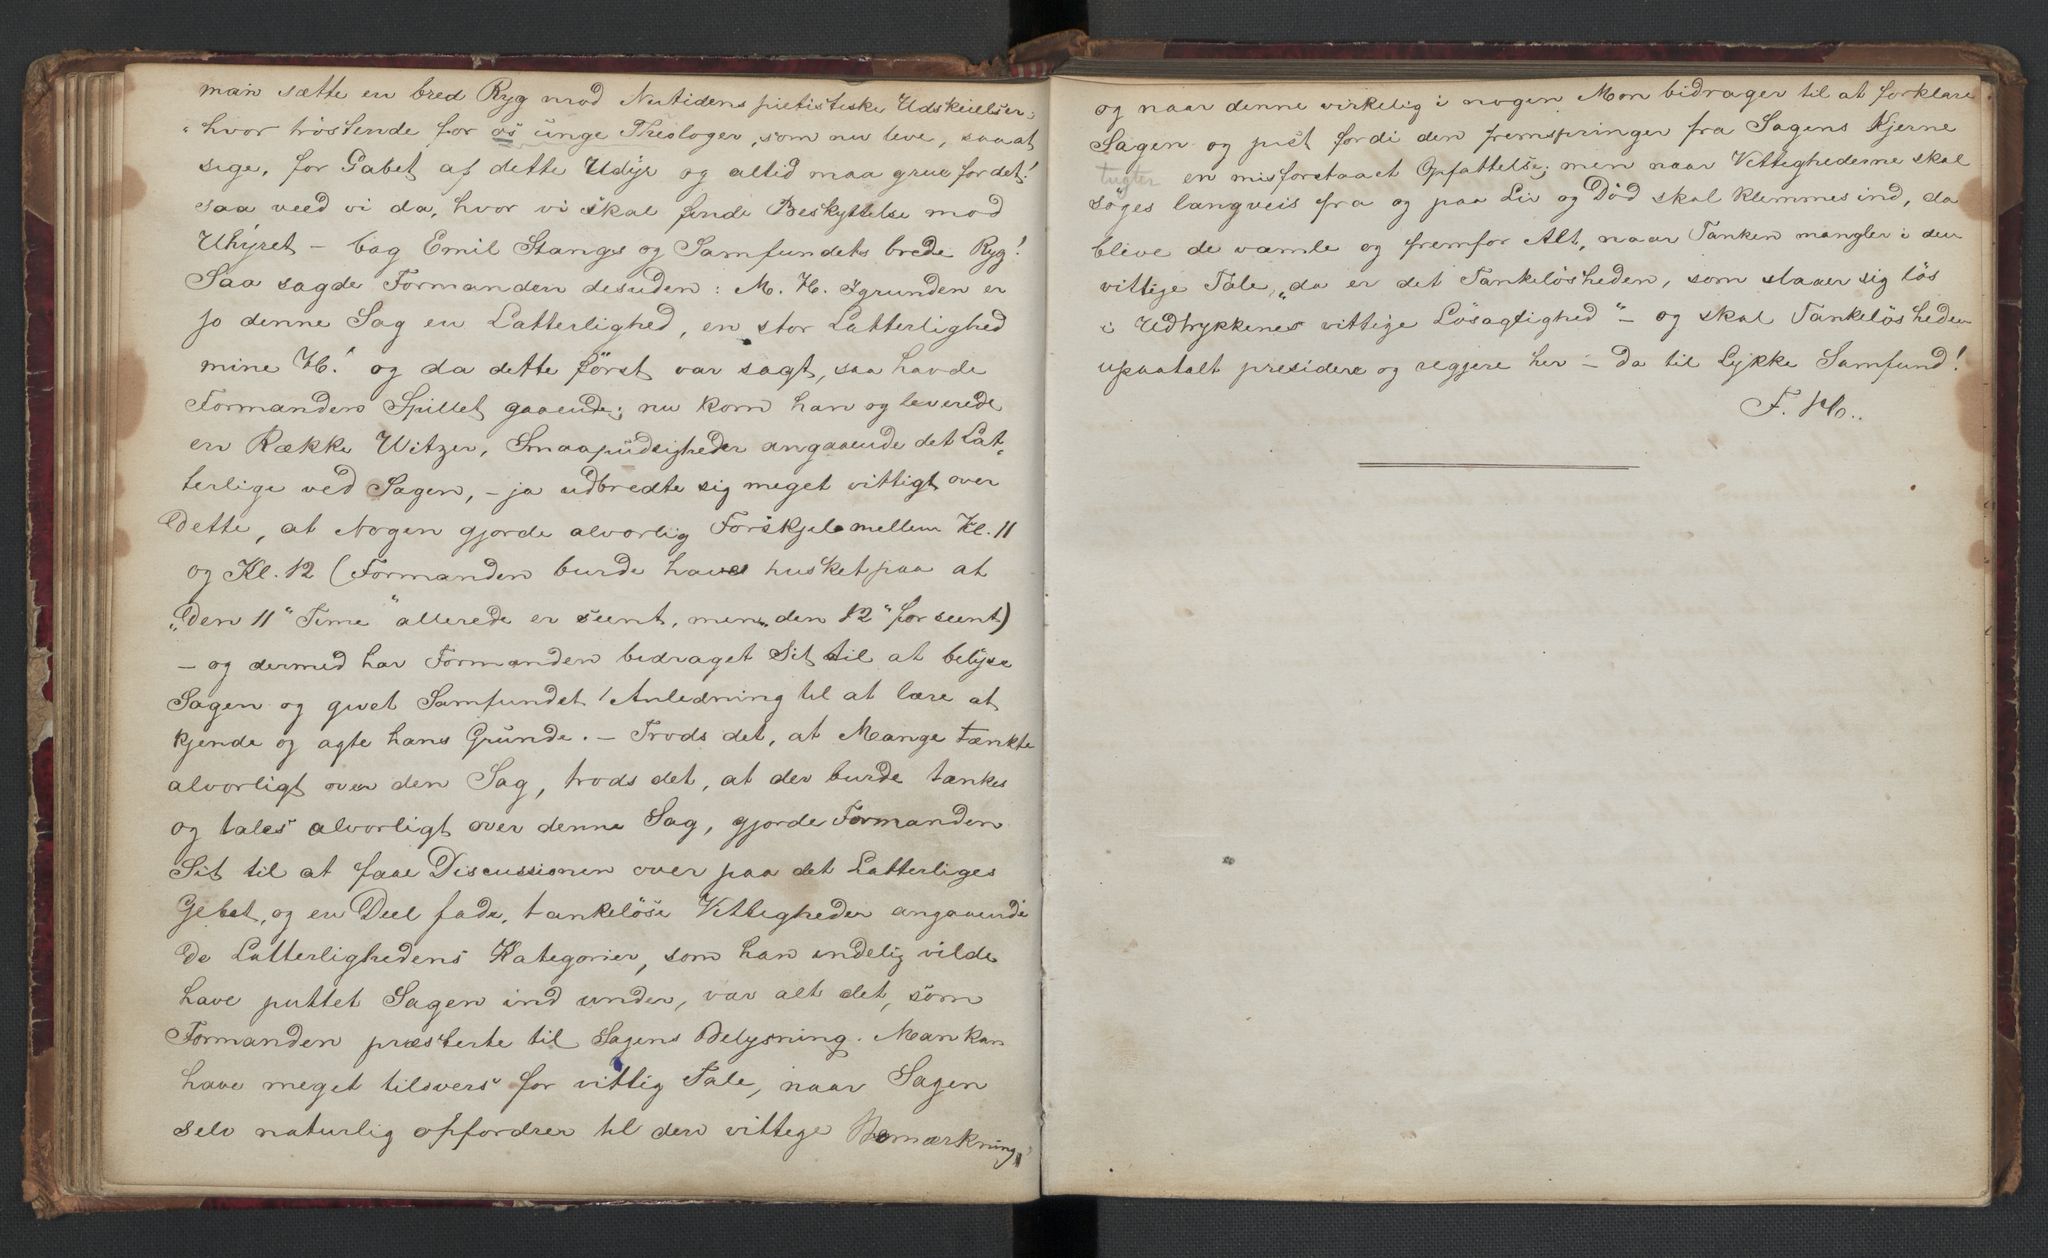 man sætte en bred Ryg mod Nutidens pietistiske Udskeielser,
hvor trøstende for os unge Theologer, som nu leve, saa at
sige, for Gabet af dette Udyr og altid maa grue for det!
saa veed vi da, hvor vi skal finde Beskyttelse mod
Uhyret – bag Emil Stangs og Samfundets brede Ryg!
Saa sagde Formanden desuden: M. H. Igrunden er
jo denne Sag en Latterlighed, en stor Latterlighed
mine H.! og da dette først var sagt, saa havde
Formanden Spillet gaaende; nu kom han og leverede
en Række Witzer, Smaapudsigheder angaaende det Lat-
terlige ved Sagen, – ja udbredte sig meget vittigt over
Dette, at Nogen gjorde alvorlig Forskjel mellem Kl. 11
og Kl. 12 (Formanden burde have husket paa at
"den 11" Time" allerede er seent, men "den 12" for seent)
– og dermed har Formanden bidraget Sit til at belyse
Sagen og givet Samfundet Anledning til at lære at
kjende og agte hans Grunde. – Trods det, at Mange tænkte
alvorligt over den Sag, trods det, at der burde tænkes
og tales alvorligt over denne Sag, gjorde Formanden
Sit til at faae Discussionen over paa det Latterliges
Gebet, og en Deel fade, tankeløse Vittigheder angaaende
de Latterlighedens Kategorier, som han endelig vilde
have puttet Sagen ind under, var alt det, som
Formanden præsterte til Sagens Belysning. Man kan
have meget tilovers for vittig Tale, naar Sagen
selv naturlig opfordrer til den vittige Bemærkning,
og naar denne virkelig i nogen Mon bidrager til at forklare
Sagen og just fordi den fremspringer fra Sagens Kjerne
tugter en misforstaaet Opfattelse; men naar Vittighederne skal
søges langveis fra og paa Liv og Død skal klemmes ind, da
blive de vamle og fremfor Alt, naar Tanken mangler i den
vittige Tale, "da er det Tankeløsheden, som slaaer sig løs
i Udtrykkenes vittige Løsagtighed" – og skal Tankeløsheden
upaatalt presidere og regjere her – da til Lykke Samfund!
F. M.